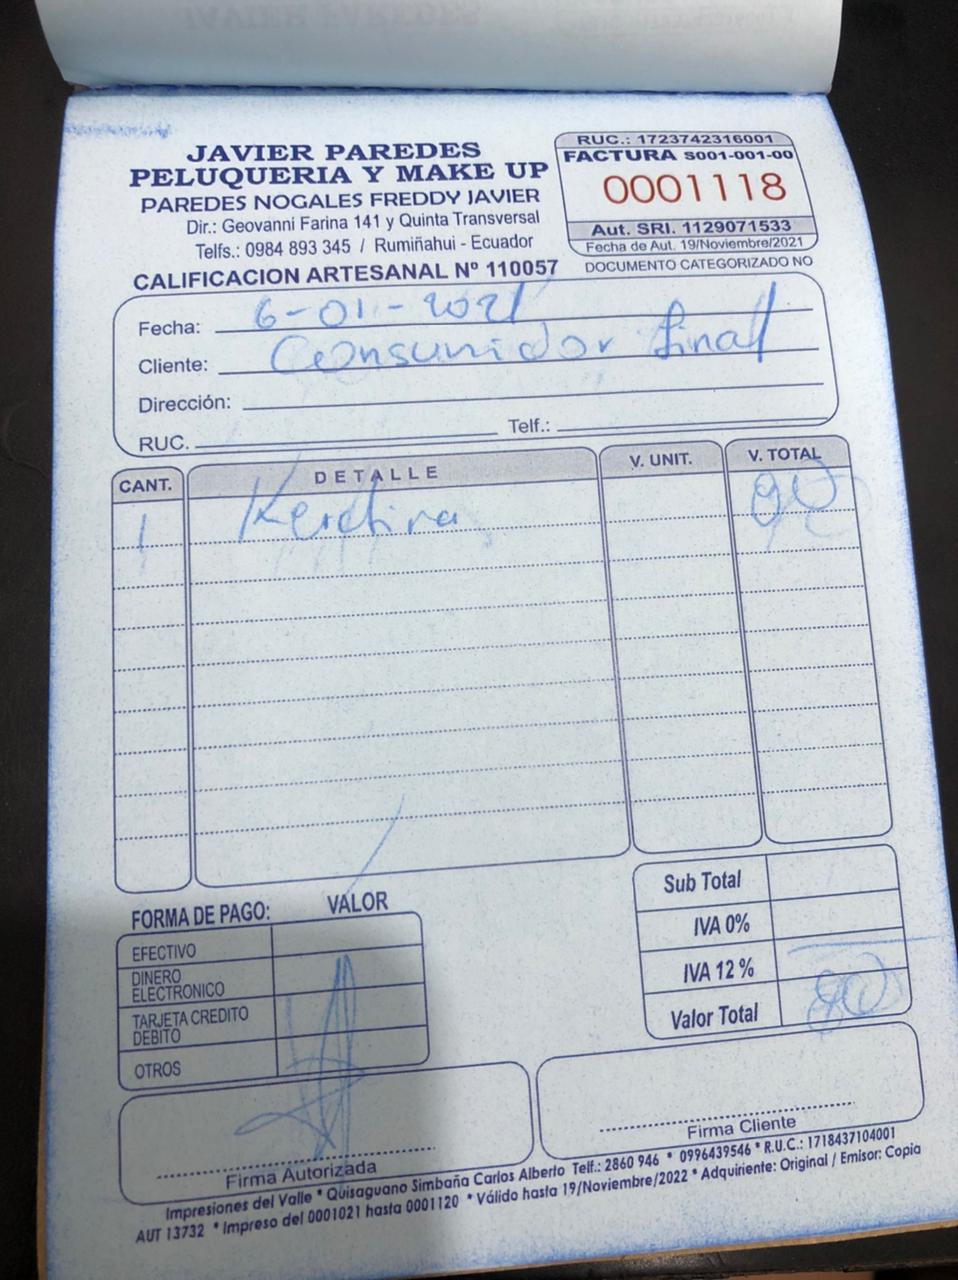 JAVIER PAREDES
PELUQUERIA Y MAKE UP
PAREDES NOGALES FREDDY JAVIER
Dir.: Geovanni Farina 141 y Quinta Transversal
Telfs.: 0984 893 345 / Rumiñahui - Ecuador
CALIFICACION ARTESANAL Nº 110057
RUC.: 1723742316001
FACTURA S001-001-00
0001118
Aut. SRI. 1129071533
Fecha de Aut. 19/Noviembre/2021
DOCUMENTO CATEGORIZADO NO
Fecha: 6-01-2021
Cliente: Consumidor final
Dirección:
RUC. Telf.:
CANT. DETALLE V. UNIT. V. TOTAL
1 90
FORMA DE PAGO: VALOR
EFECTIVO
DINERO ELECTRONICO
TARJETA CREDITO DEBITO
OTROS
Sub Total
IVA 0%
IVA 12 %
Valor Total 90
Firma Autorizada
Firma Cliente
Impresiones del Valle * Quisaguano Simbaña Carlos Alberto Telf.: 2860 946 * 0996439546 * R.U.C.: 1718437104001
AUT 13732 * Impreso del 0001021 hasta 0001120 * Válido hasta 19/Noviembre/2022 * Adquiriente: Original / Emisor: Copia